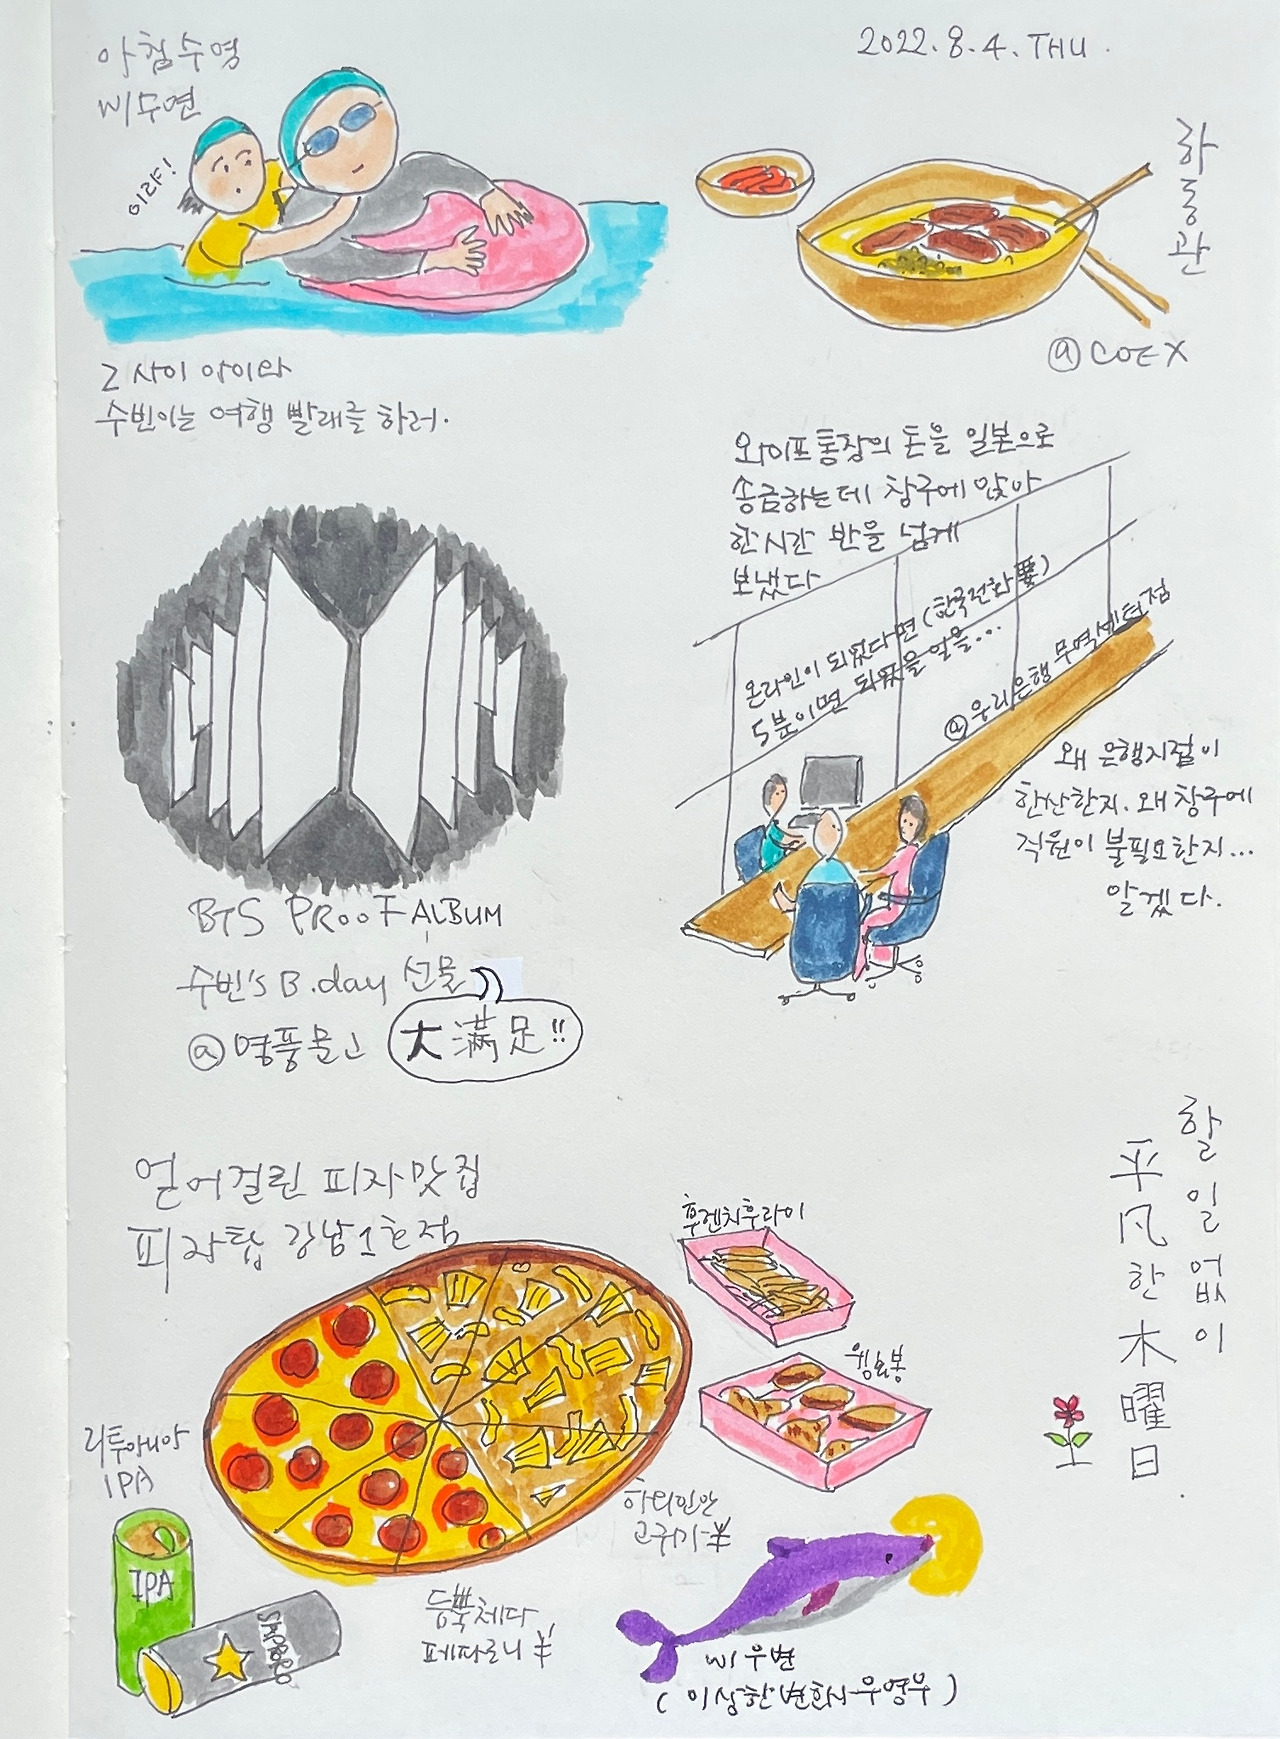 2022.8.4. THU.
아침수영
W/무연
이랴!
그 사이 아이와
수빈이는 여행 빨래를 하러.
하동관
@ COEX
와이프통장의 돈을 일본으로
송금하는데 창구에 앉아
한시간 반을 넘게
보냈다
온라인이 되었다면 (한국전화
5분이면 되었을 일을...
@ 우리은행 무역센터점
왜 은행지점이
한산한지. 왜 창구에
직원이 불필요한지...
알겠다.
BTS PROOF ALBUM
수빈's B.day 선물
@ 영풍문고
大滿足!!
얻어걸린 피자맛집
피자탑 강남1호점
후렌치후라이
윙&봉
리투아니아
IPA
IPA
SAPPORO
하와이안
고구마 半
듬뿍체다
페파로니 半
W/ 우변
(이상한변호사우영우)
할일없이
平凡한 木曜日